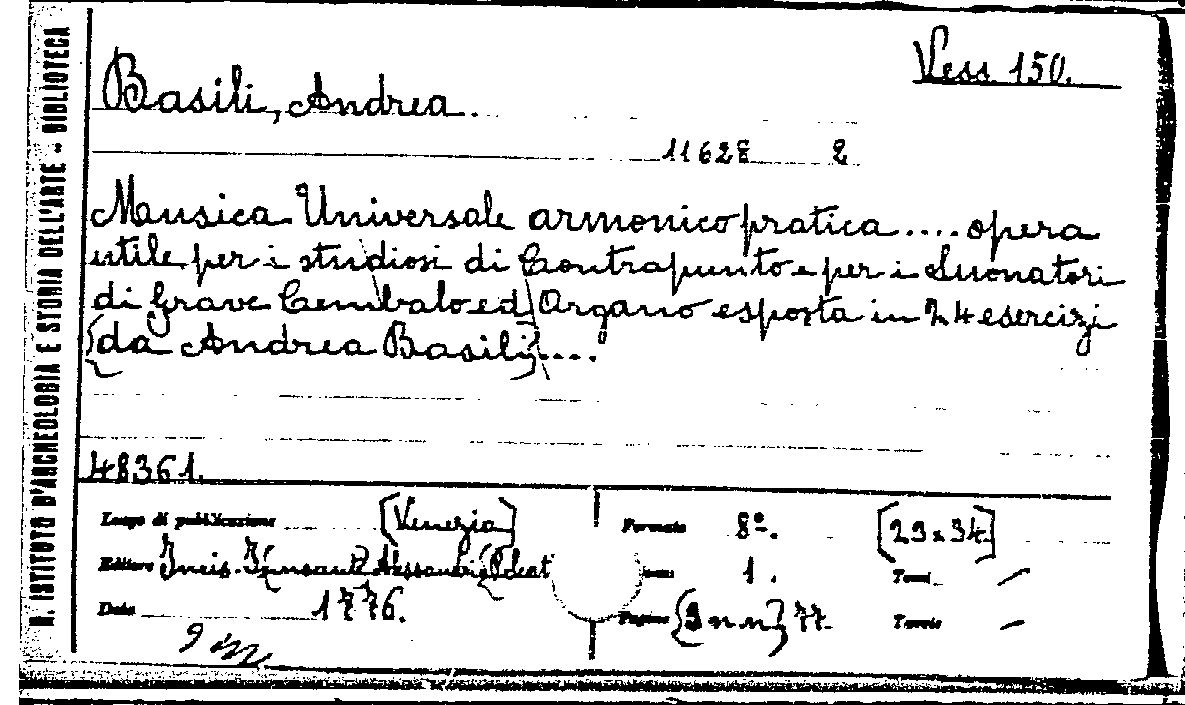 R. ISTITUTO D'ARCHEOLOGIA E STORIA DELL'ARTE - BIBLIOTECA
Vess 150.
Basili, Andrea.
11628 2
Musica Universale armonico pratica .... opera
utile per i studiosi di Contrapunto e per i Suonatori
di Grave Cembalo ed Organo esposta in 24 esercizi
[da Andrea Basili] ....
48361.
Luogo di pubblicazione [Venezia] Formato 8º. [23 x 34]
Editore Incis. Alessandri 1. Tomi –
Data 1776. Pagine [3 n n] 77. Tavole –